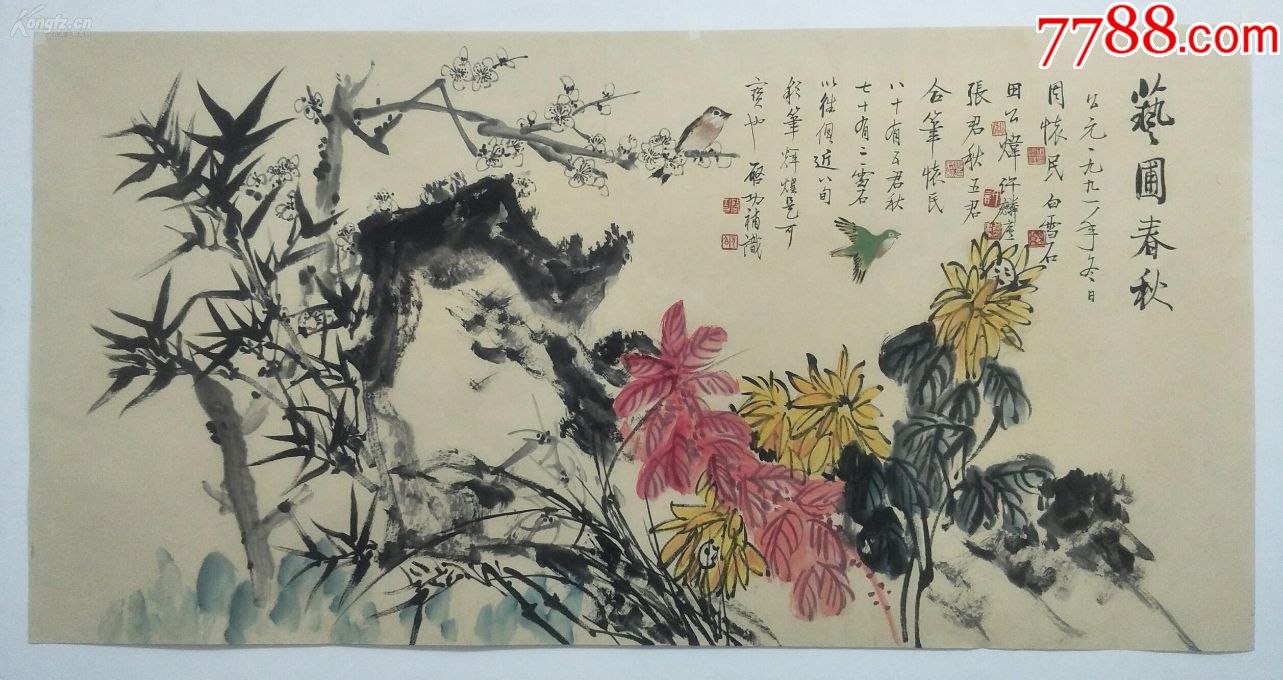 Kongfz.cn
7788.com
藝圃春秋
公元一九九一年冬日
周懷民 白雪石
田公煒 許麟廬
張君秋五君
合筆懷民
八十有五君秋
七十有二雪石
以往俱近八旬
彩筆輝煌是可
寶也 啓功補識